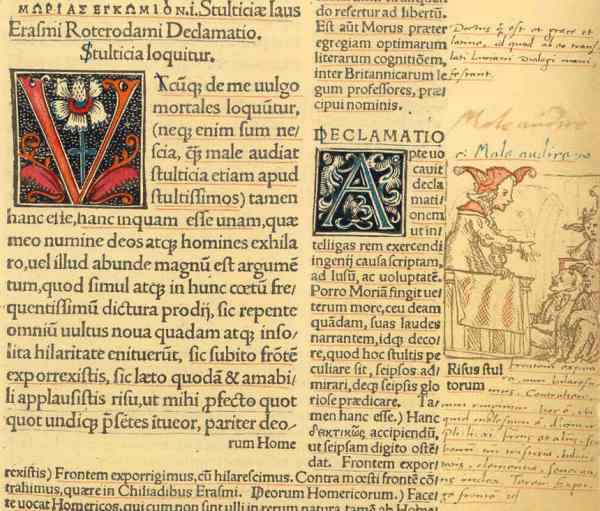 ΜΩΡΙΑΣ ΕΓΚΩΜΙΟΝ.i. Stulticiæ laus
Erasmi Roterodami Declamatio.
Stulticia loquitur.
VTcūq; de me uulgo
mortales loquūtur,
(neq; enim sum ne/
scia, q̄; male audiat
stulticia etiam apud
stultissimos) tamen
hanc esse, hanc inquam esse unam, quæ
meo numine deos atq; homines exhila
ro, uel illud abunde magnū est argumē
tum, quod simul atq; in hunc cœtū fre/
quentissimū dictura prodij, sic repente
omniū uultus noua quadam atq; inso/
lita hilaritate enituerūt, sic subito frōtē
exporrexistis, sic læto quodā & amabi/
li applausistis risu, ut mihi ꝓfecto quot
quot undiq; p̄sētes ītueor, pariter deo/
rum Home
do refertur ad libertū.
Est aūt Morus præter
egregiam optimarum
literarum cognitiōem,
inter Britannicarum le
gum professores, præ/
cipui nominis.
DECLAMATIO
Apte uo
cauit
decla
mati/
onem
ut in/
telligas rem exercendi
ingenij causa scriptam,
ad lusū, ac uoluptatē.
Porro Moriā fingit ue/
terum more, ceu deam
quādam, suas laudes
narrantem, idq; deco/
re, quod hoc stultis pe
culiare sit, seipsos ad/
mirari, deq; seipsis glo
riose prædicare. Ta/
men hanc esse.) Hanc
δεικτικῶς accipiendū,
ut seipsam digito ostē/
dat. Frontem expor/
rexistis) Frontem exporrigimus, cū hilarescimus. Contra mœsti frontē cō/
trahimus, quare in Chiliadibus Erasmi. Deorum Homericorum.) Facet
te uocat Homericos, qui cum non sint ulli in rerum natura, tamē ab Home/
Male audire
Male audire
Risus stul
torum